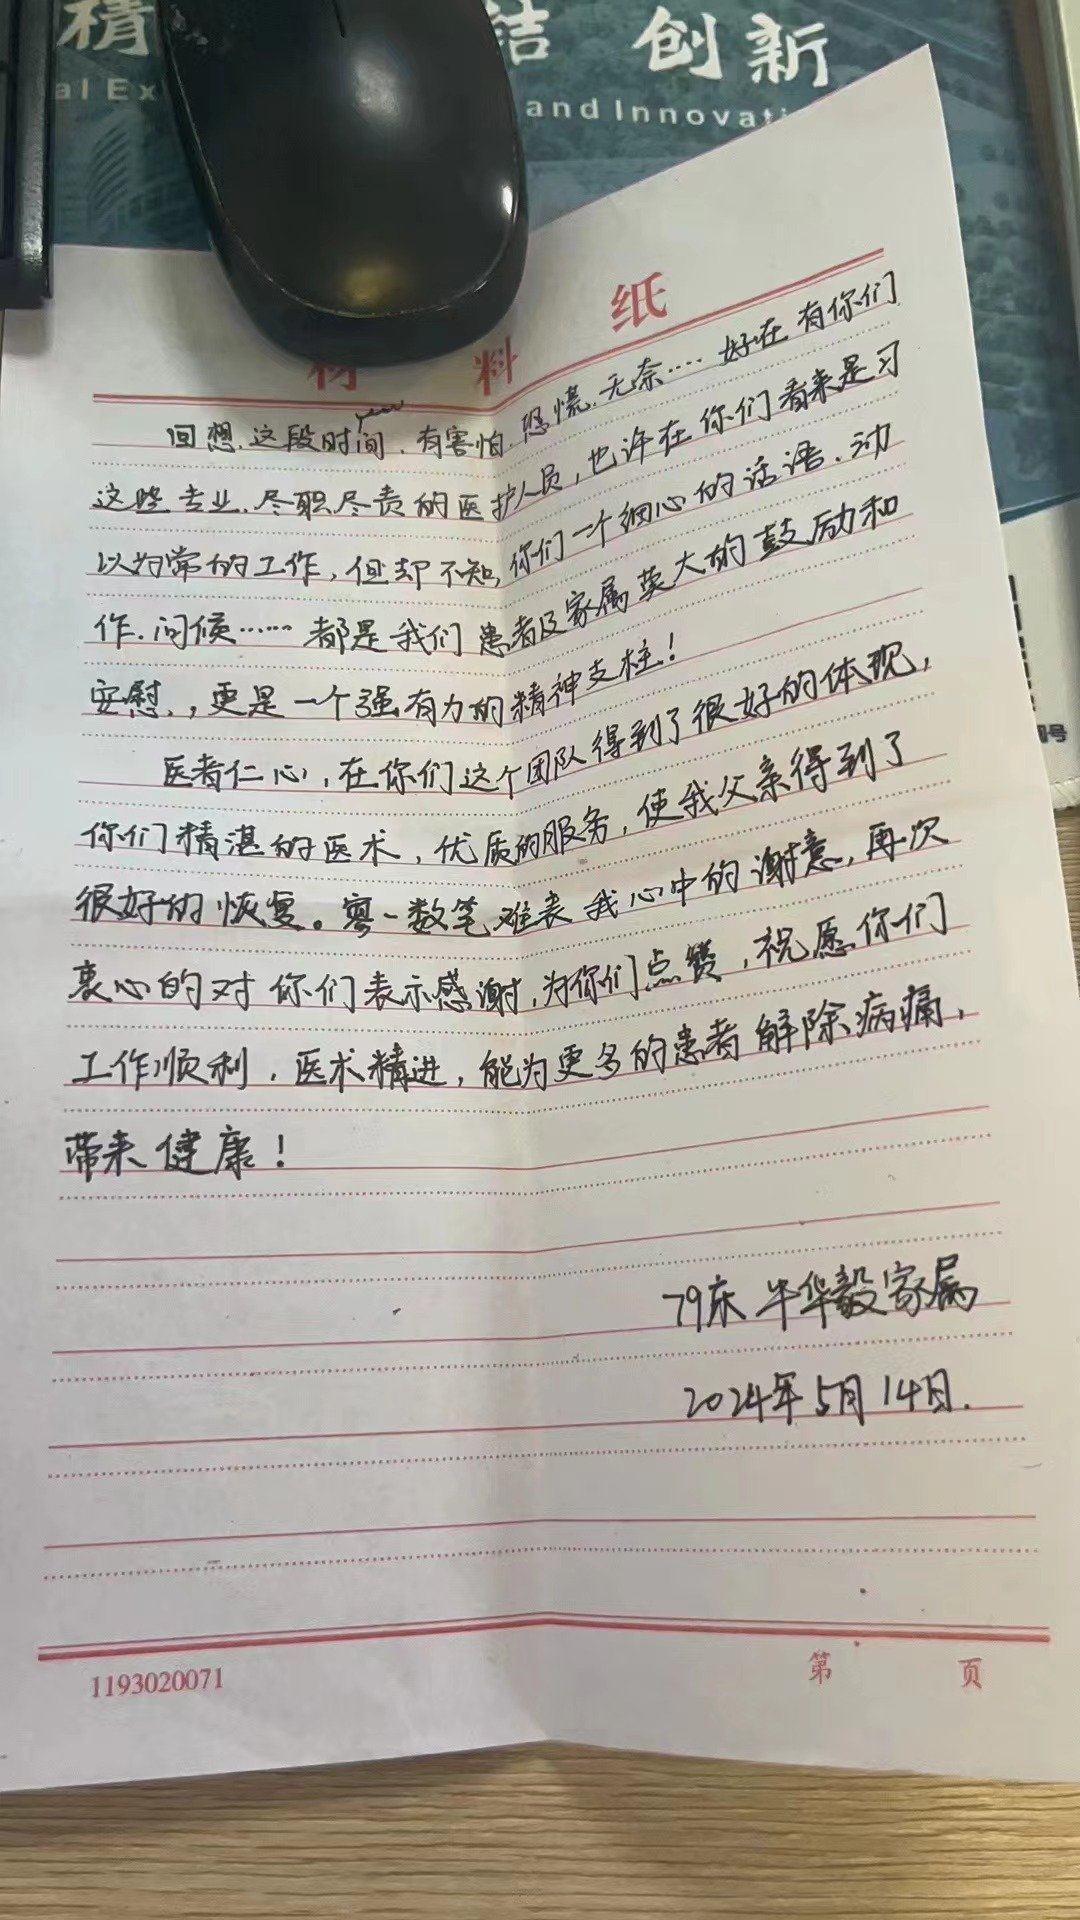 精 结 创新
al Ex and Innovati
材 料 纸
回想.这段时间.有害怕.恐慌.无奈....好在有你们
这些专业.尽职尽责的医护人员,也许在你们看来是习
以为常的工作,但却不知,你们一个细心的话语.动
作.问候......都是我们患者及家属莫大的鼓励和
安慰.,更是一个强有力的精神支柱!
医者仁心,在你们这个团队得到了很好的体现,
你们精湛的医术,优质的服务,使我父亲得到了
很好的恢复。寥一数笔难表我心中的谢意,再次
衷心的对你们表示感谢,为你们点赞,祝愿你们
工作顺利,医术精进,能为更多的患者解除病痛,
带来健康!
79床 牛华毅家属
2024年5月14日.
1193020071
第 页
号